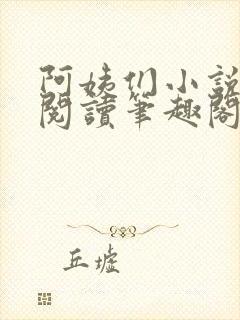 阿姨们小說
閱讀筆趣閣
丘墟